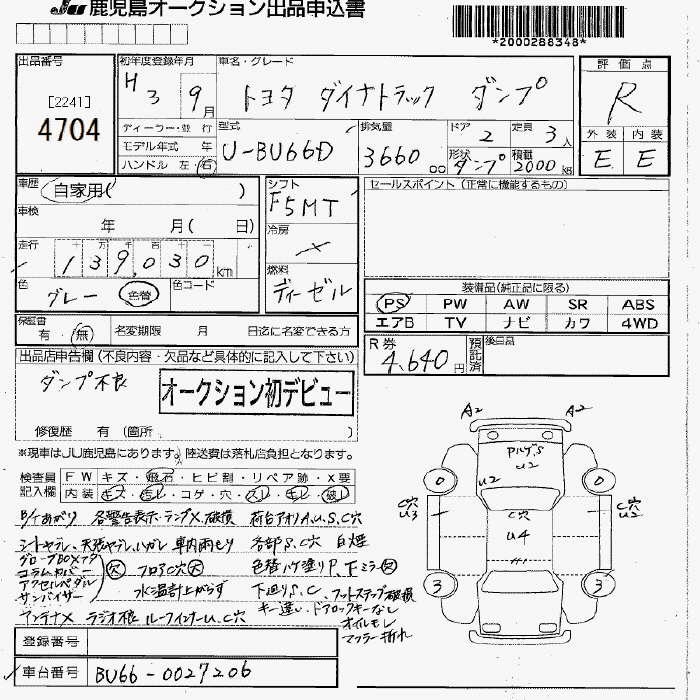 JU 鹿児島オークション出品申込書
*2000288348*
出品番号
[2241]
4704
初年度登録年月
H3 9月
車名・グレード
トヨタ ダイナトラック ダンプ
評価点
R
外装 内装
E E
ディーラー・並 行
モデル年式 年
ハンドル 左 右
型式
U-BU66D
排気量
3660 cc
ドア
2
定員
3人
形状
ダンプ
積載
2000 kg
車歴
自家用( )
車検
年 月( 日)
走行
十 万 千 百 十 一
139,030 km
色
グレー 色替
色コード
シフト
F5MT
冷房
×
燃料
ディーゼル
セールスポイント (正常に機能するもの)
装備品(純正品に限る)
PS PW AW SR ABS
エアB TV ナビ カワ 4WD
保証書
有・無
名変期限 月 日迄に名変できる方
R券
4,640円
預託済
後日品
出品店申告欄(不良内容・欠品など具体的に記入して下さい)
ダンプ不良
オークション初デビュー
修復歴 有 (箇所 )
※現車はJU鹿児島にあります。陸送費は落札店負担となります。
検査員記入欄
FW キズ・飛石・ヒビ割・リペア跡・X要
内装 キズ・汚レ・コゲ・穴・スレ・キレ・破レ
B/Tあがり 各警告表示・ランプX、破損 荷台アオリA,U,S,C穴
シートヤブレ、天張ヤブレ、ハガレ 車内雨もり 各部S,C穴 白煙
グローブBOXフタ
コラムカバー
アクセルペダル
サンバイザー
欠 フロアC穴大 色替ハゲ塗りP、下ミラー欠
水温計上がらず 下廻りS,C、フットステップ破損
キー違い ドアロックキーなし
アンテナX ラジオ不良 ルーフインナーU,C穴 オイルモレ
マフラー折れ
A2 A2
Pハゲ,S
U2
0 0
U2
C穴
U3
C穴
U4
C穴
U2
3 3
登録番号
車台番号 BU66-0027206